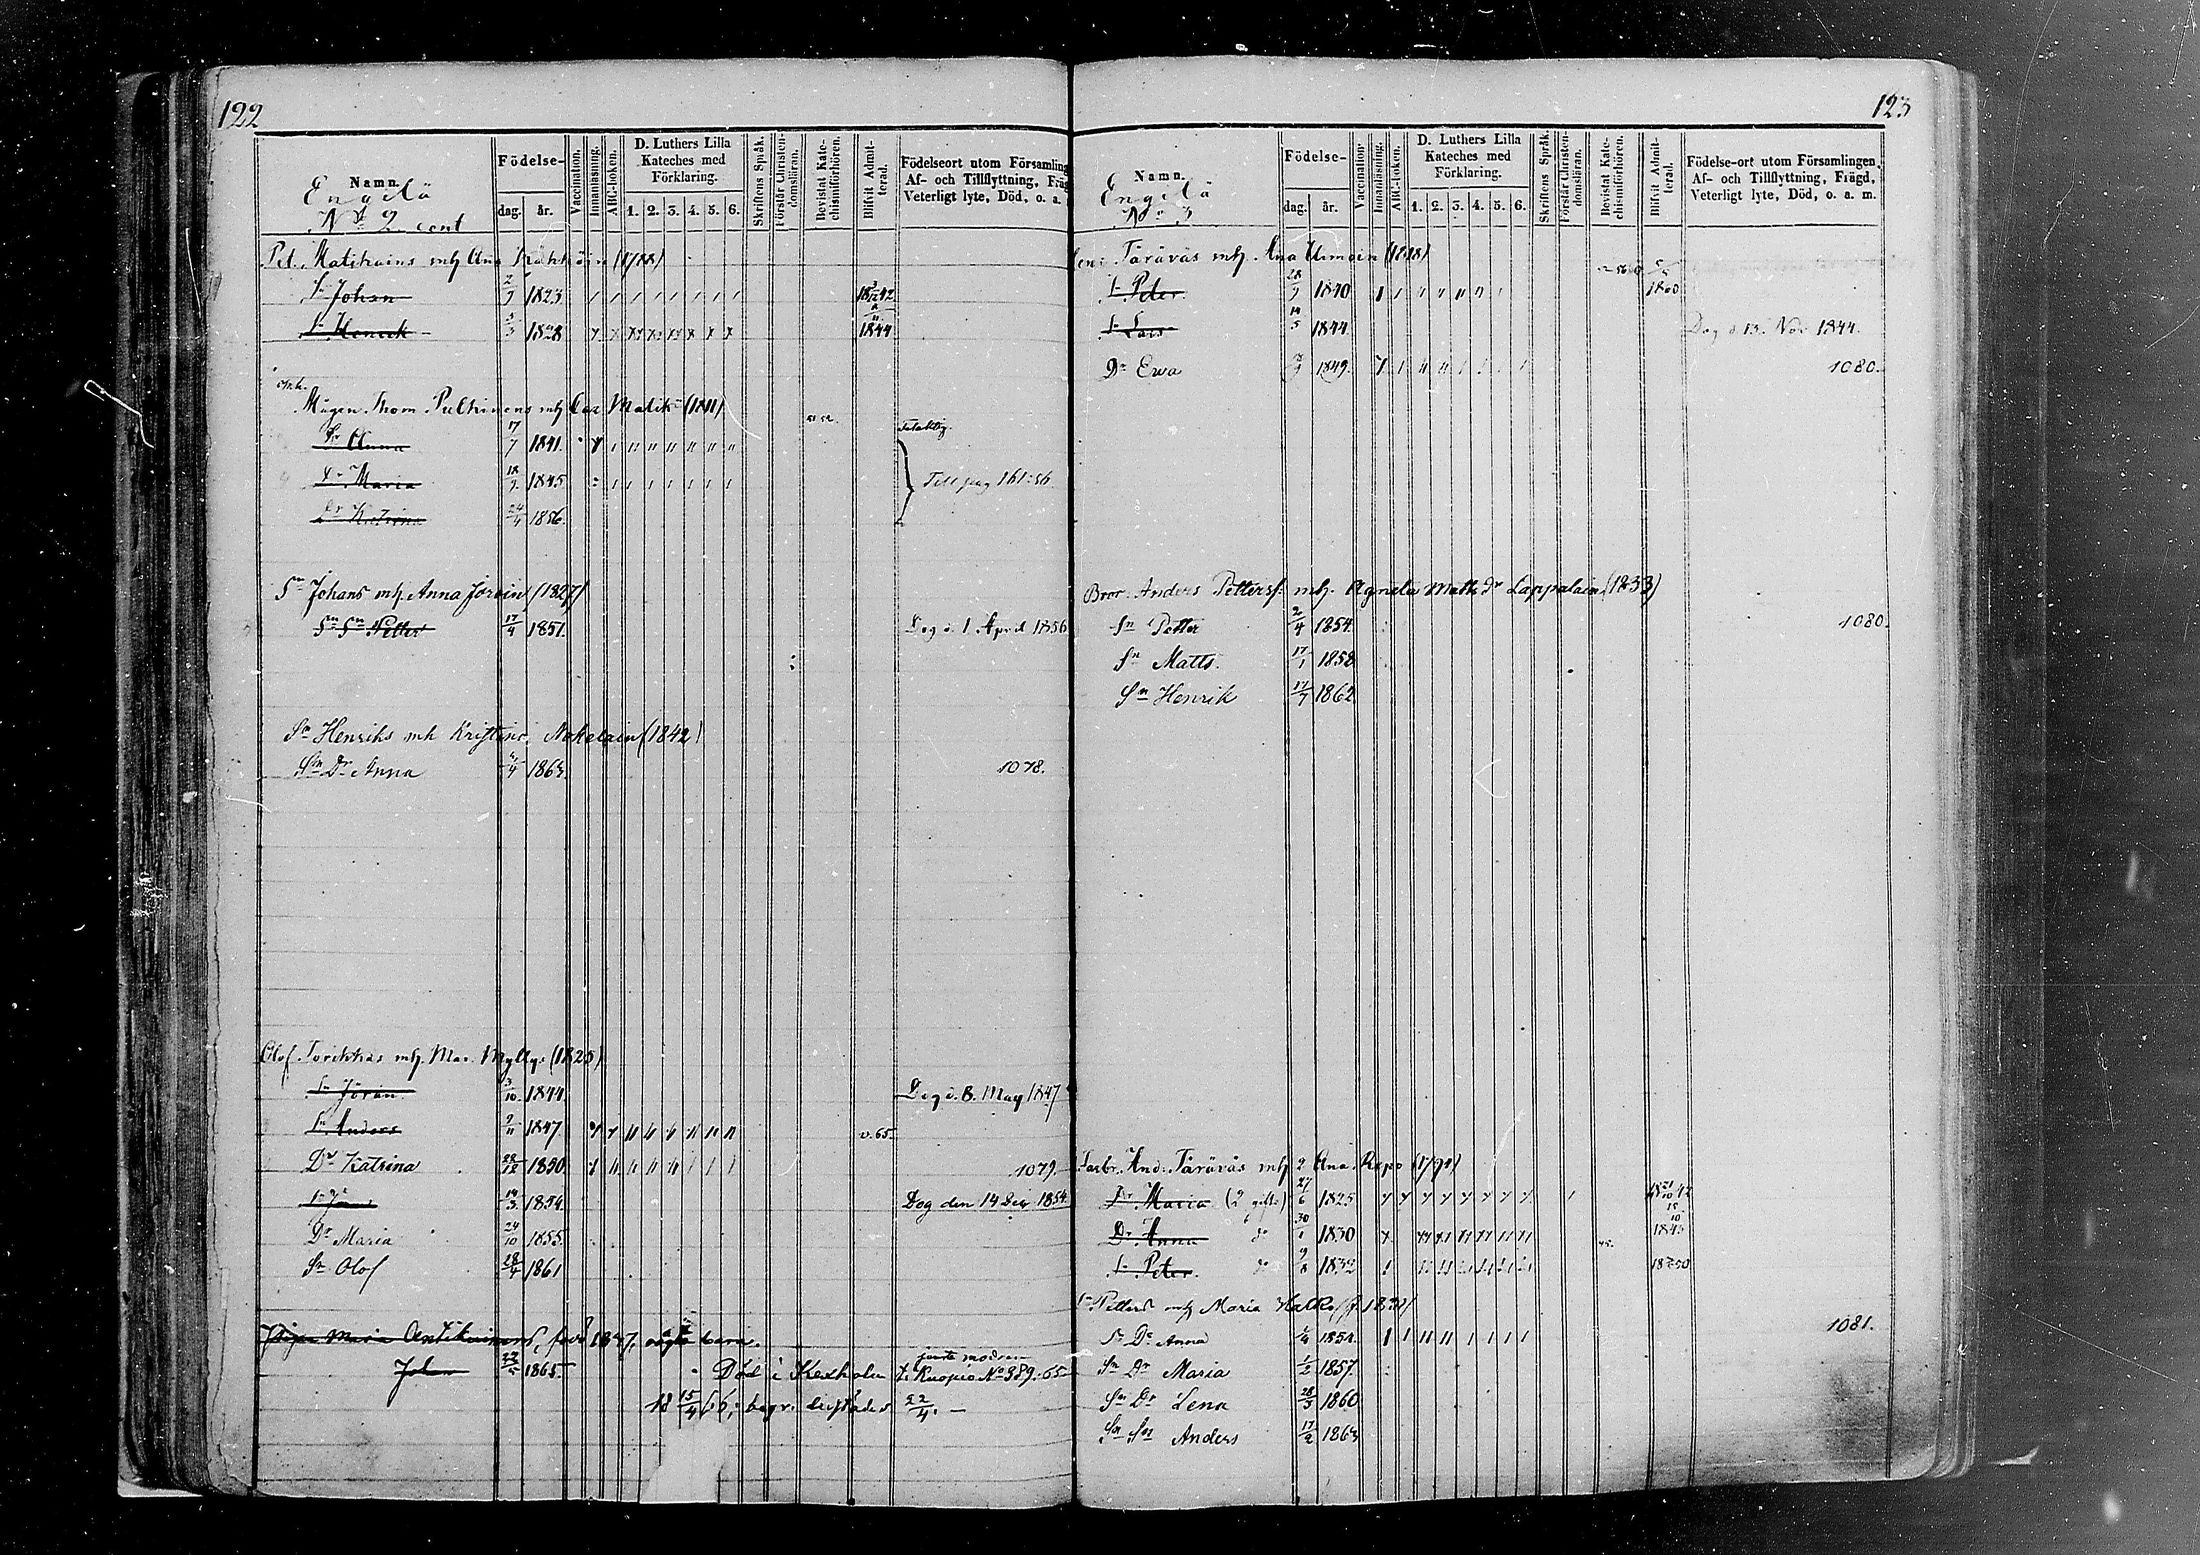 122
Namn.
Engilä
No 2 cont
Födelse-
dag. år.
Vaccination.
Innanläsning.
ABC-boken.
D. Luthers Lilla
Kateches med
Förklaring.
1. 2. 3. 4. 5. 6.
Skriftens Språk.
Förstår Christen-
domsläran.
Bevistat Kate-
chismiförhören.
Blifvit Admit-
terad.
Födelseort utom Församling
Af- och Tillflyttning, Fräg
Veterligt lyte, Död, o. a.
Pet. Matikains mh Ana (1788)
Sn Johan 2/9 1823 18 3/12 42
Sn Henrik 1828 1844
enk.
Mågen Thom. Pulkinens mh Cax Matik (1811)
Dr Anna 17/7 1841.
Dr Maria 18/9 1845 Till pag 161:56
Dr Katrina 24/4 1856
Sn Johans mh. Anna Jörein (1827)
Sn Sn Petter 17/4 1851. Dog d. 1 April 1856
Sn Henriks mh Kristina Nokelain (1842)
Sn Dr Anna 1863 1078.
Olof Torikkas mh. Mar. Myllys (1825)
Sn Jöran 3/10 1844 Dog d. 8. May 1847
Sn Anders 9/11 1847 v. 65.
Dr Katrina 22/12 1850 1079.
1854. Dog den 14 Dec 1854.
Dr Maria 24/10 1855.
Sn Olof 28/4 1861
Pigan Maria Antikainens, född 1847, oägta barn.
Johan 1865 Död i Kexholm
modren
Kuopio No 389.-65
18 15/4 66; begr. 22/4. —
123
Namn.
Engilä
No 3
Födelse-
dag. år.
Vaccination.
Innanläsning.
ABC-boken.
D. Luthers Lilla
Kateches med
Förklaring.
1. 2. 3. 4. 5. 6.
Skriftens Språk.
Förstår Christen-
domsläran.
Bevistat Kate-
chismiförhören.
Blifvit Admit-
terad.
Födelse-ort utom Församlingen,
Af- och Tillflyttning, Frägd,
Veterligt lyte, Död, o. a. m.
Täräväs mh. Ana (1818)
Sn Peter 28/9 1840 1860
Sn Lars 14/5 1844. Dog d 13. Nov 1844.
Dr Ewa 1849. 1080.
Bror. Anders Petterss: mh. Agneta Matts Dr Lappalain (1833)
Sn Petter 2/4 1854. 1080.
Sn Matts. 17/1 1858
Sn Henrik 17/7 1862
Farbr. And: Täräväs mh 2 Ana Repo (1790)
Dr Maria (2 gifte) 27/6 1825
Dr Anna do 30/1 1830 1845
Sn Peter. do 9/8 1832 1850
Sn Petters mh Maria Halko
Sn Dr Anna 1/4 1854. 1081.
Sn Dr Maria 1/2 1857.
Sn Dr Lena 28/3 1860
Sn Sn Anders 17/2 1863